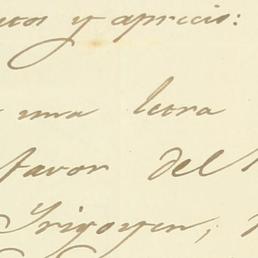 y aprecio:
una letra
favor del
Yrigoyen,